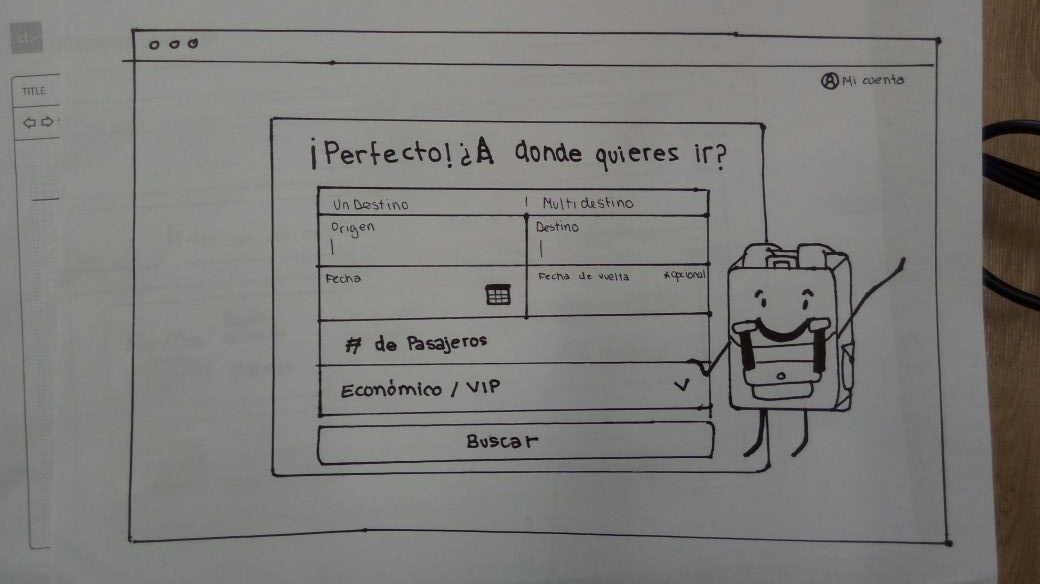 <I>
TITLE
Mi cuenta
¡Perfecto! ¿A donde quieres ir?
Un Destino | Multidestino
Origen
Destino
Fecha
Fecha de vuelta *opcional
# de Pasajeros
Económico / VIP
Buscar